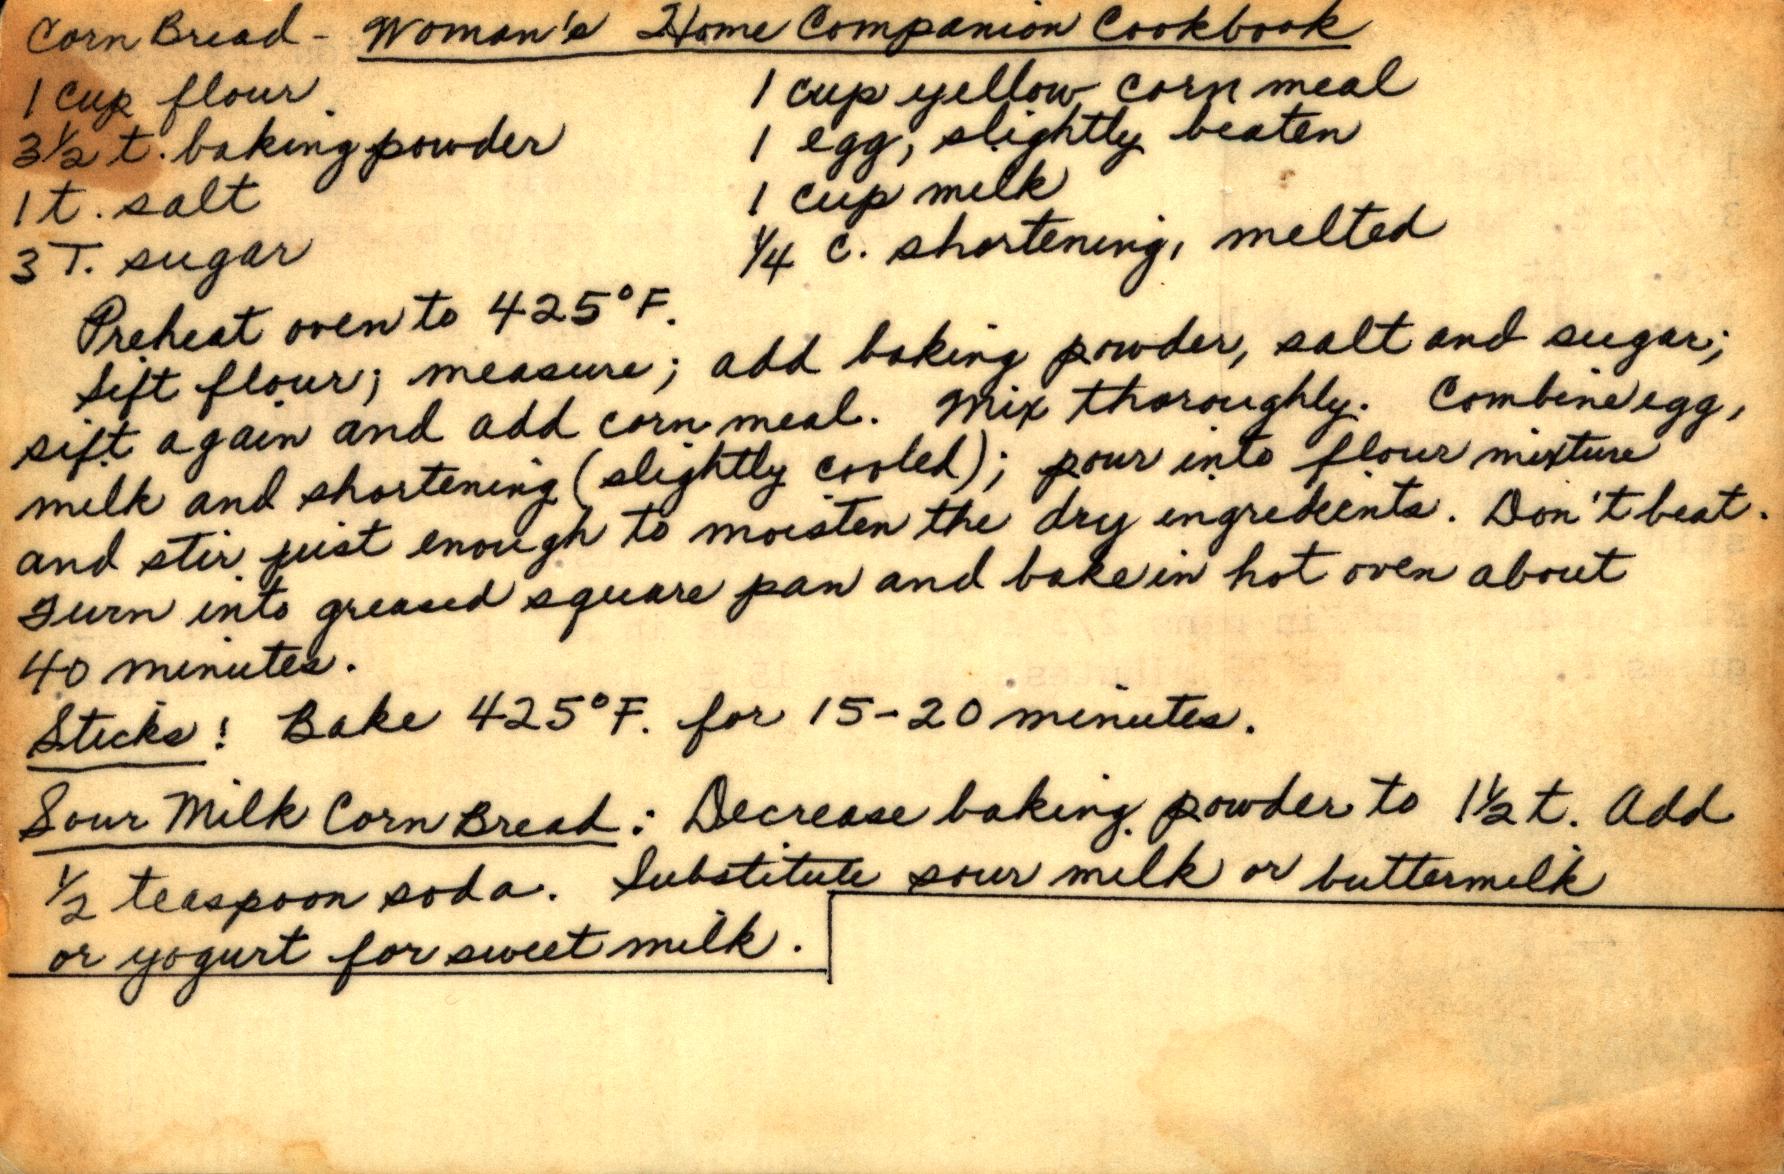 Corn Bread - Woman's Home Companion Cookbook
1 cup flour
1 cup yellow corn meal
3½ t. baking powder
1 egg, slightly beaten
1 t. salt
1 cup milk
3 T. sugar
¼ c. shortening, melted
Preheat oven to 425°F.
Sift flour; measure; add baking powder, salt and sugar;
sift again and add corn meal. Mix thoroughly. Combine egg,
milk and shortening (slightly cooled); pour into flour mixture
and stir just enough to moisten the dry ingredients. Don't beat.
Turn into greased square pan and bake in hot oven about
40 minutes.
Sticks! Bake 425°F. for 15-20 minutes.
Sour Milk Corn Bread: Decrease baking powder to 1½ t. Add
½ teaspoon soda. Substitute sour milk or buttermilk
or yogurt for sweet milk.